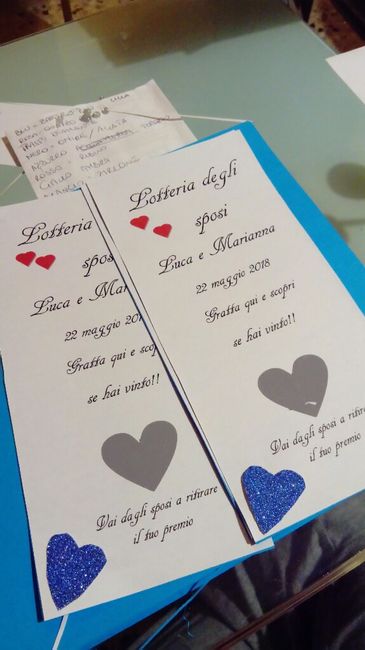 Lotteria degli
sposi
Luca e Marianna
22 maggio 2018
Gratta qui e scopri
se hai vinto!!
Vai dagli sposi a ritirare
il tuo premio
Lotteria
spos
Luca e Mar
22 maggio 20
Gratta qui e scop
se hai vinto!!
Vai dagli sposi a ritirare
il tuo premio
AZZURRO
ROSSO